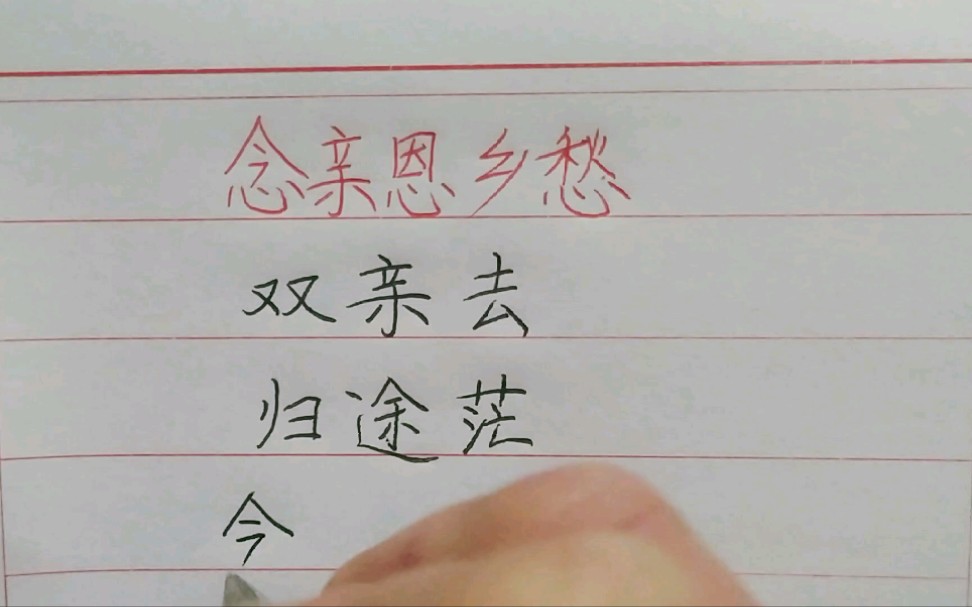 念亲恩乡愁
双亲去
归途茫
今